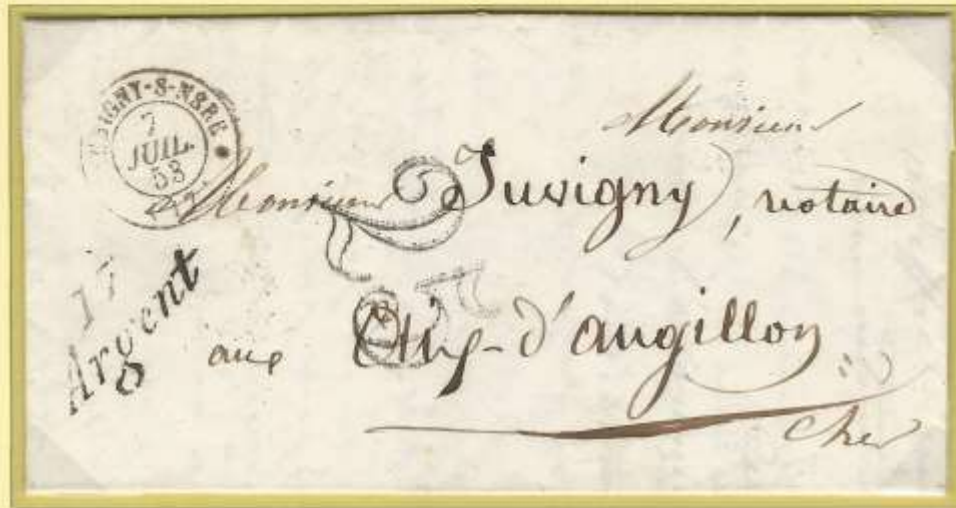 IGNY-S-NERE
7
JUIL.
53
Monsieur
Monsieur Juvigny, notaire
17
Argent
aux Aix-d'angillon
Cher